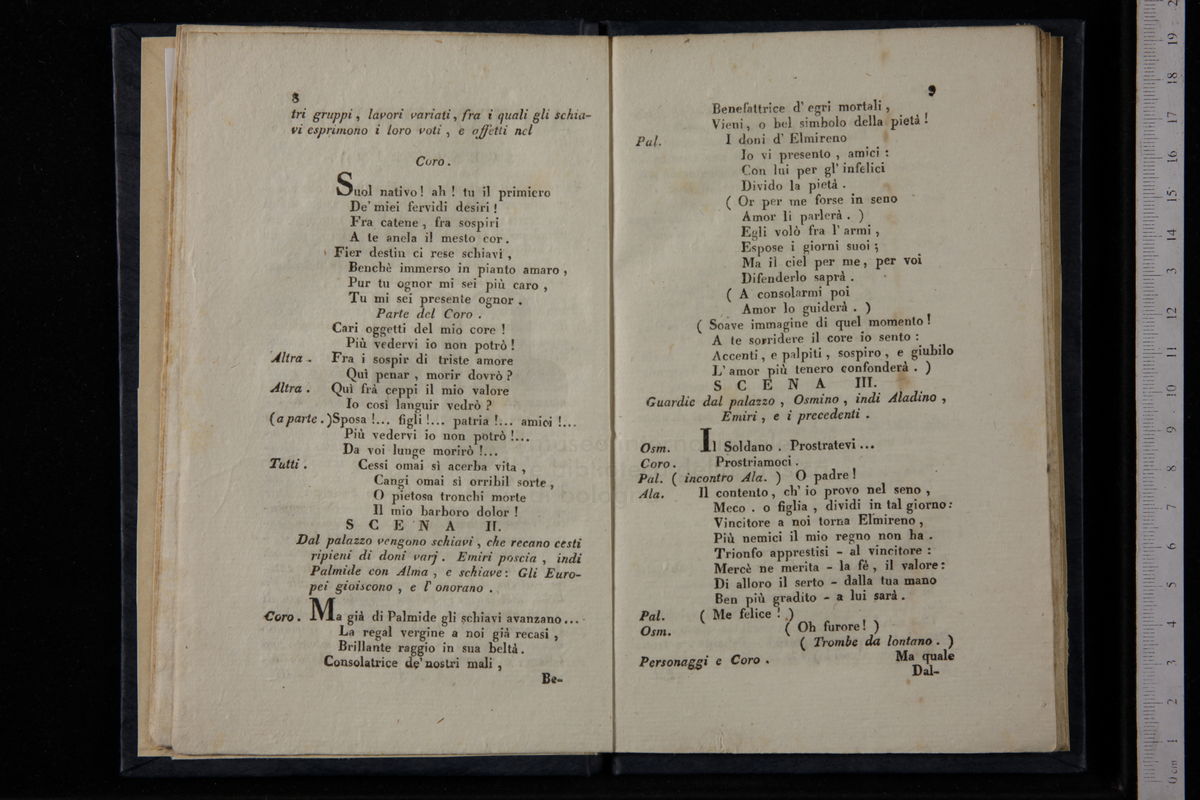 8
tri gruppi , lavori variati , fra i quali gli schia-
vi esprimono i loro voti , e affetti nel
Coro .
Suol nativo ! ah ! tu il primiero
De' miei fervidi desiri !
Fra catene , fra sospiri
A te anela il mesto cor .
Fier destin ci rese schiavi ,
Benchè immerso in pianto amaro ,
Pur tu ognor mi sei più caro ,
Tu mi sei presente ognor .
Parte del Coro .
Cari oggetti del mio core !
Più vedervi io non potrò !
Altra . Fra i sospir di triste amore
Quì penar , morir dovrò ?
Altra . Quì frà ceppi il mio valore
Io così languir vedrò ?
( a parte . ) Sposa !... figli !... patria !... amici !...
Più vedervi io non potrò !...
Da voi lunge morirò !...
Tutti . Cessi omai sì acerba vita ,
Cangi omai sì orribil sorte ,
O pietosa tronchi morte
Il mio barboro dolor !
SCENA II.
Dal palazzo vengono schiavi , che recano cesti
ripieni di doni varj . Emiri poscia , indi
Palmide con Alma , e schiave : Gli Euro-
pei gioiscono , e l' onorano .
Coro . Ma già di Palmide gli schiavi avanzano ...
La regal vergine a noi già recasi ,
Brillante raggio in sua beltà .
Consolatrice de' nostri mali ,
Be-
9
Benefattrice d' egri mortali ,
Vieni , o bel simbolo della pietà !
Pal. I doni d' Elmireno
Io vi presento , amici :
Con lui per gl' infelici
Divido la pietà .
( Or per me forse in seno
Amor li parlerà . )
Egli volò fra l' armi ,
Espose i giorni suoi ;
Ma il ciel per me , per voi
Difenderlo saprà .
( A consolarmi poi
Amor lo guiderà . )
( Soave immagine di quel momento !
A te sorridere il core io sento :
Accenti , e palpiti , sospiro , e giubilo
L' amor più tenero confonderà . )
SCENA III.
Guardie dal palazzo , Osmino , indi Aladino ,
Emiri , e i precedenti .
Osm. Il Soldano . Prostratevi ...
Coro . Prostriamoci .
Pal. ( incontro Ala. ) O padre !
Ala. Il contento , ch' io provo nel seno ,
Meco . o figlia , dividi in tal giorno :
Vincitore a noi torna Elmireno ,
Più nemici il mio regno non ha .
Trionfo apprestisi - al vincitore :
Mercè ne merita - la fè , il valore :
Di alloro il serto - dalla tua mano
Ben più gradito - a lui sarà .
Pal. ( Me felice ! )
Osm. ( Oh furore ! )
( Trombe da lontano . )
Personaggi e Coro . Ma quale
Dal-